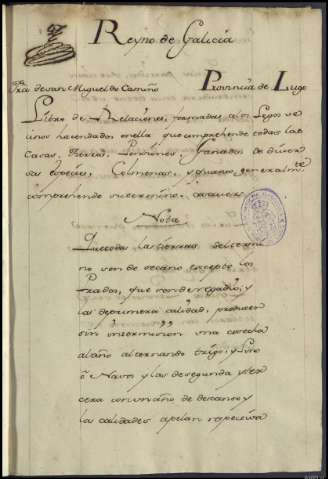 Reyno de Galicia
fra. de san Miguel de Camiño Provincia de Lugo
Libro de Relaciones, tomadas a los Legos ve
cinos hacendado, en ella que comprehende todas las
Casas, Tierras, Pensiones, Ganados de diver
sas espezies, Colmenas, y quanto generalmte
comprehende su termino,
Nota
Que todas las tierras del termi
no son de secano excepto los
Prados, que son de regadio, y
las de primera calidad, producen
sin intermision una cosecha
al año alternando trigo, y Lino
ô Navos y las de segunda y ter
cera con un año de descanso y
las calidades apelan respectiva